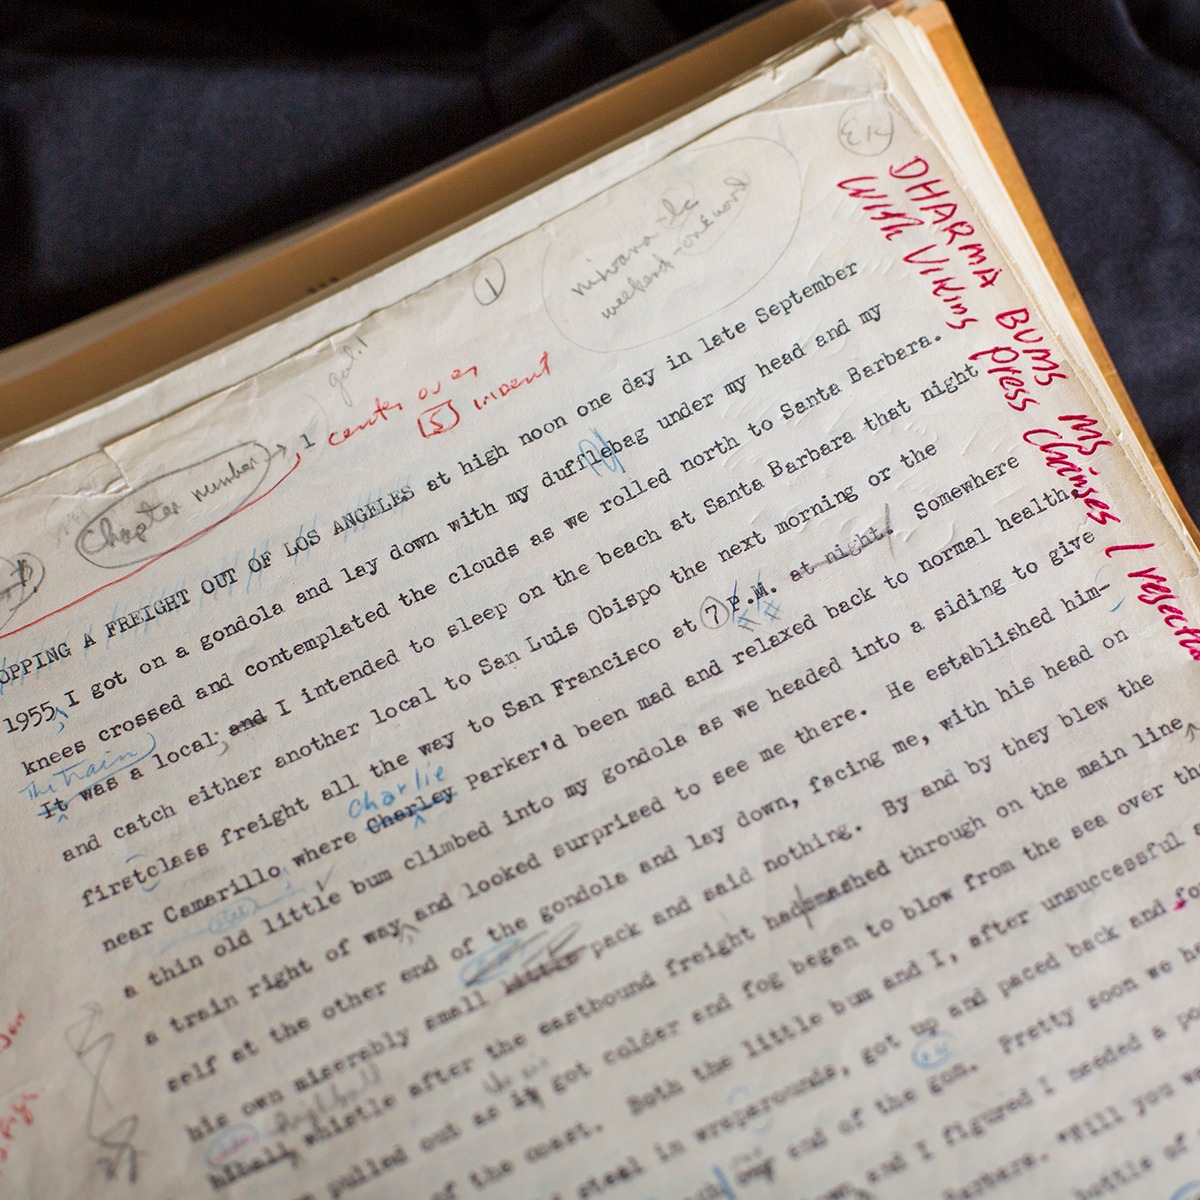 DHARMA BUMS MS
With Viking press changes I
nirvana-lc
weekend-one word
1
gal.1
Chapter number → 1 center over
5 indent
OPPING A FREIGHT OUT OF LOS ANGELES at high noon one day in late September
1955, I got on a gondola and lay down with my dufflebag under my head and my
knees crossed and contemplated the clouds as we rolled north to Santa Barbara.
The train
It was a local; and I intended to sleep on the beach at Santa Barbara that night
and catch either another local to San Luis Obispo the next morning or the
firstclass freight all the way to San Francisco at 7 P.M. at night. Somewhere
charlie
near Camarillo where Charley Parker'd been mad and relaxed back to normal health,
a thin old little bum climbed into my gondola as we headed into a siding to give
a train right of way and looked surprised to see me there. He established him-
self at the other end of the gondola and lay down, facing me, with his head on
his own miserably small little pack and said nothing. By and by they blew the
highball
hiball whistle after the eastbound freight had smashed through on the main line
pulled out as it got colder and fog began to blow from the sea over the
of the coast. Both the little bum and I, after unsuccessful
steal in wraparounds, got up and paced back and
end of the gon. Pretty soon we
and I figured I needed a
"Will you
bottle of